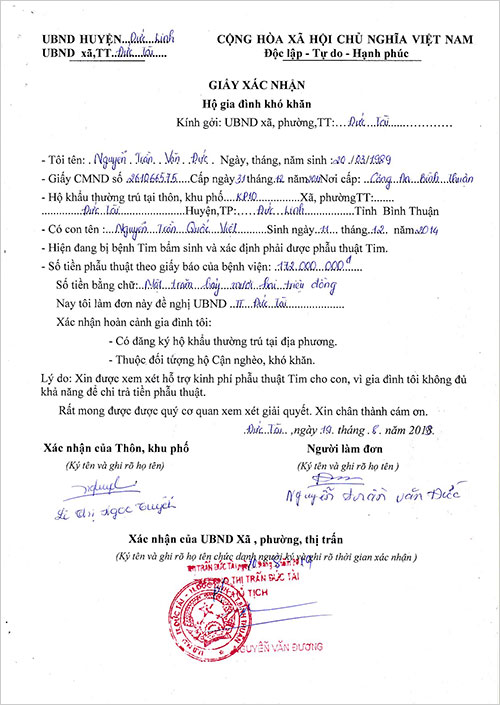 UBND HUYỆN...Đức...Linh
CỘNG HÒA XÃ HỘI CHỦ NGHĨA VIỆT NAM
UBND xã,TT...Đức...Tài.....
Độc lập - Tự do - Hạnh phúc
GIẤY XÁC NHẬN
Hộ gia đình khó khăn
Kính gởi: UBND xã, phường,TT:....Đức....Tài...............
- Tôi tên: .Nguyễn..Trần..Văn..Đức.. Ngày, tháng, năm sinh :20./03/1989
- Giấy CMND số 261066575.....Cấp ngày 31 tháng 12 năm Nơi cấp: ..Công.An..Bình..Thuận
- Hộ khẩu thường trú tại thôn, khu phố....KP10............Xã, phườngTT:.......
............Đức..Tài..................Huyện,TP:.....Đức..Linh.............Tỉnh Bình Thuận
- Có con tên :...Nguyễn..Trần..Quốc..Việt..........Sinh ngày..11.... tháng..12.. năm 2014
- Hiện đang bị bệnh Tim bẩm sinh và xác định phải được phẫu thuật Tim.
- Số tiền phẫu thuật theo giấy báo của bệnh viện: .172.000.000đ
Số tiền bằng chữ:..Một..trăm..bảy..mươi..hai..triệu..đồng
Nay tôi làm đơn này đề nghị UBND ..TT..Đức..Tài..................
Xác nhận hoàn cảnh gia đình tôi:
- Có đăng ký hộ khẩu thường trú tại địa phương.
- Thuộc đối tượng hộ Cận nghèo, khó khăn.
Lý do: Xin được xem xét hỗ trợ kinh phí phẫu thuật Tim cho con, vì gia đình tôi không đủ
khả năng để chi trả tiền phẫu thuật.
Rất mong được được quý cơ quan xem xét giải quyết. Xin chân thành cám ơn.
Đức..Tài..,ngày..19... tháng ..8.. năm
Xác nhận của Thôn, khu phố
Người làm đơn
(Ký tên và ghi rõ họ tên)
(Ký tên và ghi rõ họ tên )
Lê Thị Ngọc Tuyết
Nguyễn Trần Văn Đức
Xác nhận của UBND Xã , phường, thị trấn
(Ký tên và ghi rõ họ tên chức danh người ký và ghi rõ thời gian xác nhận )
THỊ TRẤN ĐỨC TÀI,
THỊ TRẤN ĐỨC TÀI
CHỦ TỊCH
NGUYỄN VĂN ĐƯƠNG